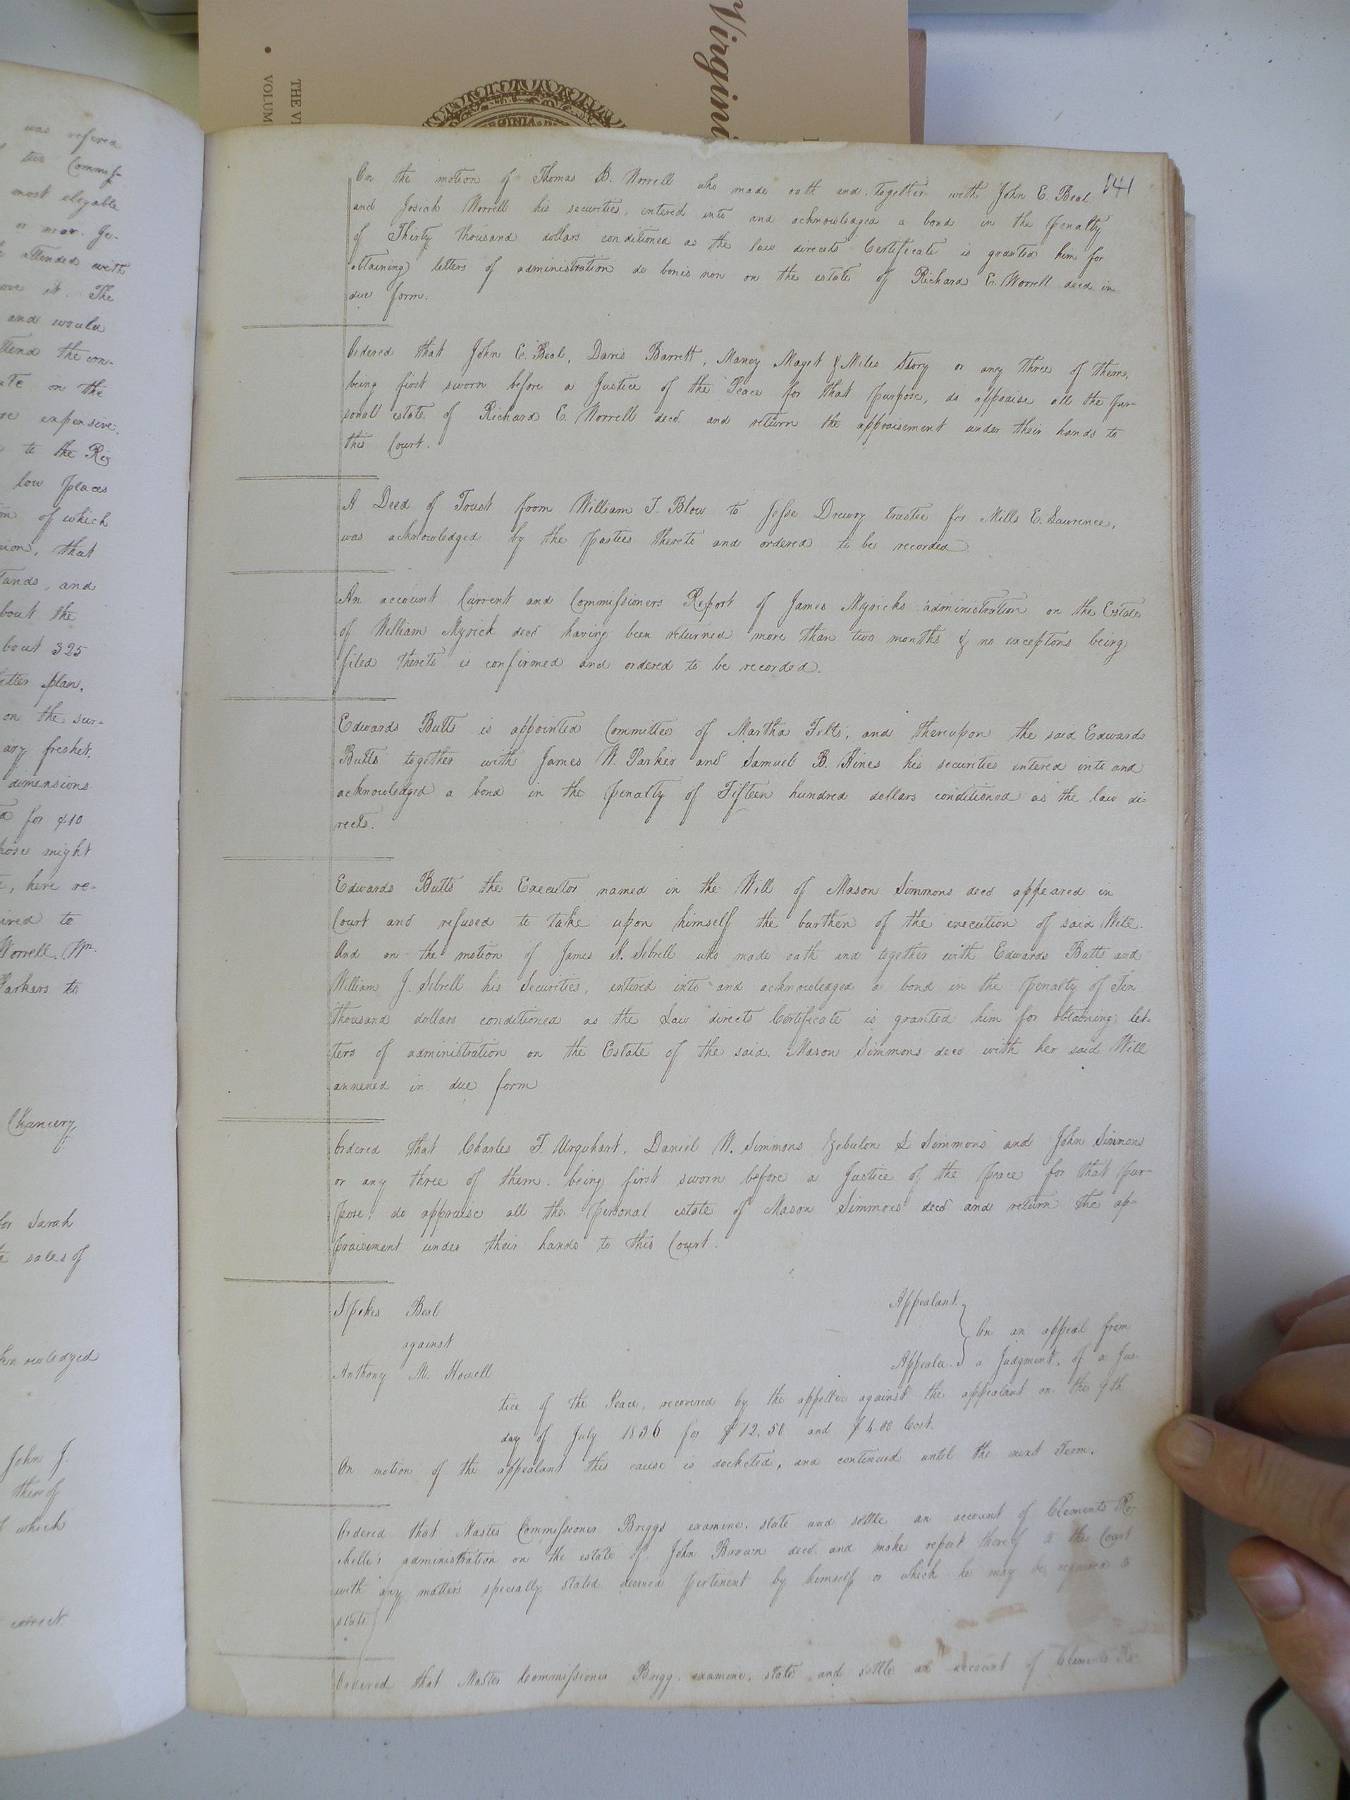 Virgini
THE VI
VOLUM
was refered
most elegable
attended with
ove it. The
and would
ttend the con-
ate on the
re expensive.
to the Rig
low places
on of which
nion, that
tands, and
bout the
bout 325
etter plan.
on the sur-
any freshet.
dimensions
d for $10
pose might
, here re-
ired to
Worrell, Wm.
Parkers to
Chancery
for Sarah
te sales of
knowledged
John J.
thereof
f which
correct.
241
On the motion of Thomas B. Worrell who made oath and together with John E. Beal
and Josiah Worrell his securities, entered into and acknowledged a bond in the penalty
of Thirty thousand dollars conditioned as the law directs Certificate is granted him for
obtaining letters of administration de bonis non on the estate of Richard E. Worrell decd in
due form.
Ordered that John E. Beal, Davis Barrett, Mancy Mayet & Miles Story or any three of them,
being first sworn before a Justice of the Peace for that purpose, do appraise all the pur-
sonall estate of Richard E. Worrell decd. and return the appraisement under their hands to
this Court.
A Deed of Trust from William T. Blow to Jesse Drewry trustee for Mills E. Lawrence,
was acknowledged by the parties thereto and ordered to be recorded
An account Current and Commissioners Report of James Myricks administration on the Estate
of William Myrick decd having been returned more than two months & no exceptons being
filed thereto is confirmed and ordered to be recorded.
Edwards Butts is appointed Committee of Martha Felts, and thereupon the said Edwards
Butts together with James W. Parker and Samuel B. Hines his securities entered into and
acknowledged a bond in the penalty of Fifteen hundred dollars conditioned as the law di-
rects.
Edwards Butts the Executor named in the Will of Mason Simmons decd appeared in
Court and refused to take upon himself the burthen of the execution of said Will.
And on the motion of James S. Sebrell who made oath and together with Edwards Butts and
William J. Sebrell his Securities, entered into and acknowledged a bond in the penalty of Ten
thousand dollars conditioned as the Law directs Certificate is granted him for obtaining let-
ters of administration on the Estate of the said Mason Simmons decd with her said Will
annexed in due form
Ordered that Charles F. Urquhart, Daniel W. Simmons Zebulon S Simmons and John Simmons
or any three of them, being first sworn before a Justice of the Peace for that pur-
pose, do appraise all the personal estate of Mason Simmons decd and return the ap-
praisement under their hands to this Court.
Spokes Beal Appealant
against On an appeal from
Anthony M. Howell Appealee a Judgment, of a Jus-
tice of the Peace, recovered by the appellee against the appealant on the 9th
day of July 1836 for $12.50 and $4.00 Cost.
On motion of the appealant this cause is docketed, and continued until the next Term.
Ordered that Master Commissioner Briggs examine, state and settle an account of Clements Ro-
chelle's administration on the estate of John Brown decd. and make report thereof to the Court
with any matters specially stated deemed pertenent by himself or which he may be required to
state
Ordered that Master Commissioner Briggs examine, state and settle an account of Clements Ro-